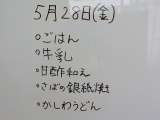 5月28日(金)
○ごはん
○牛乳
○甘酢和え
○さばの銀紙焼
○かしわうどん